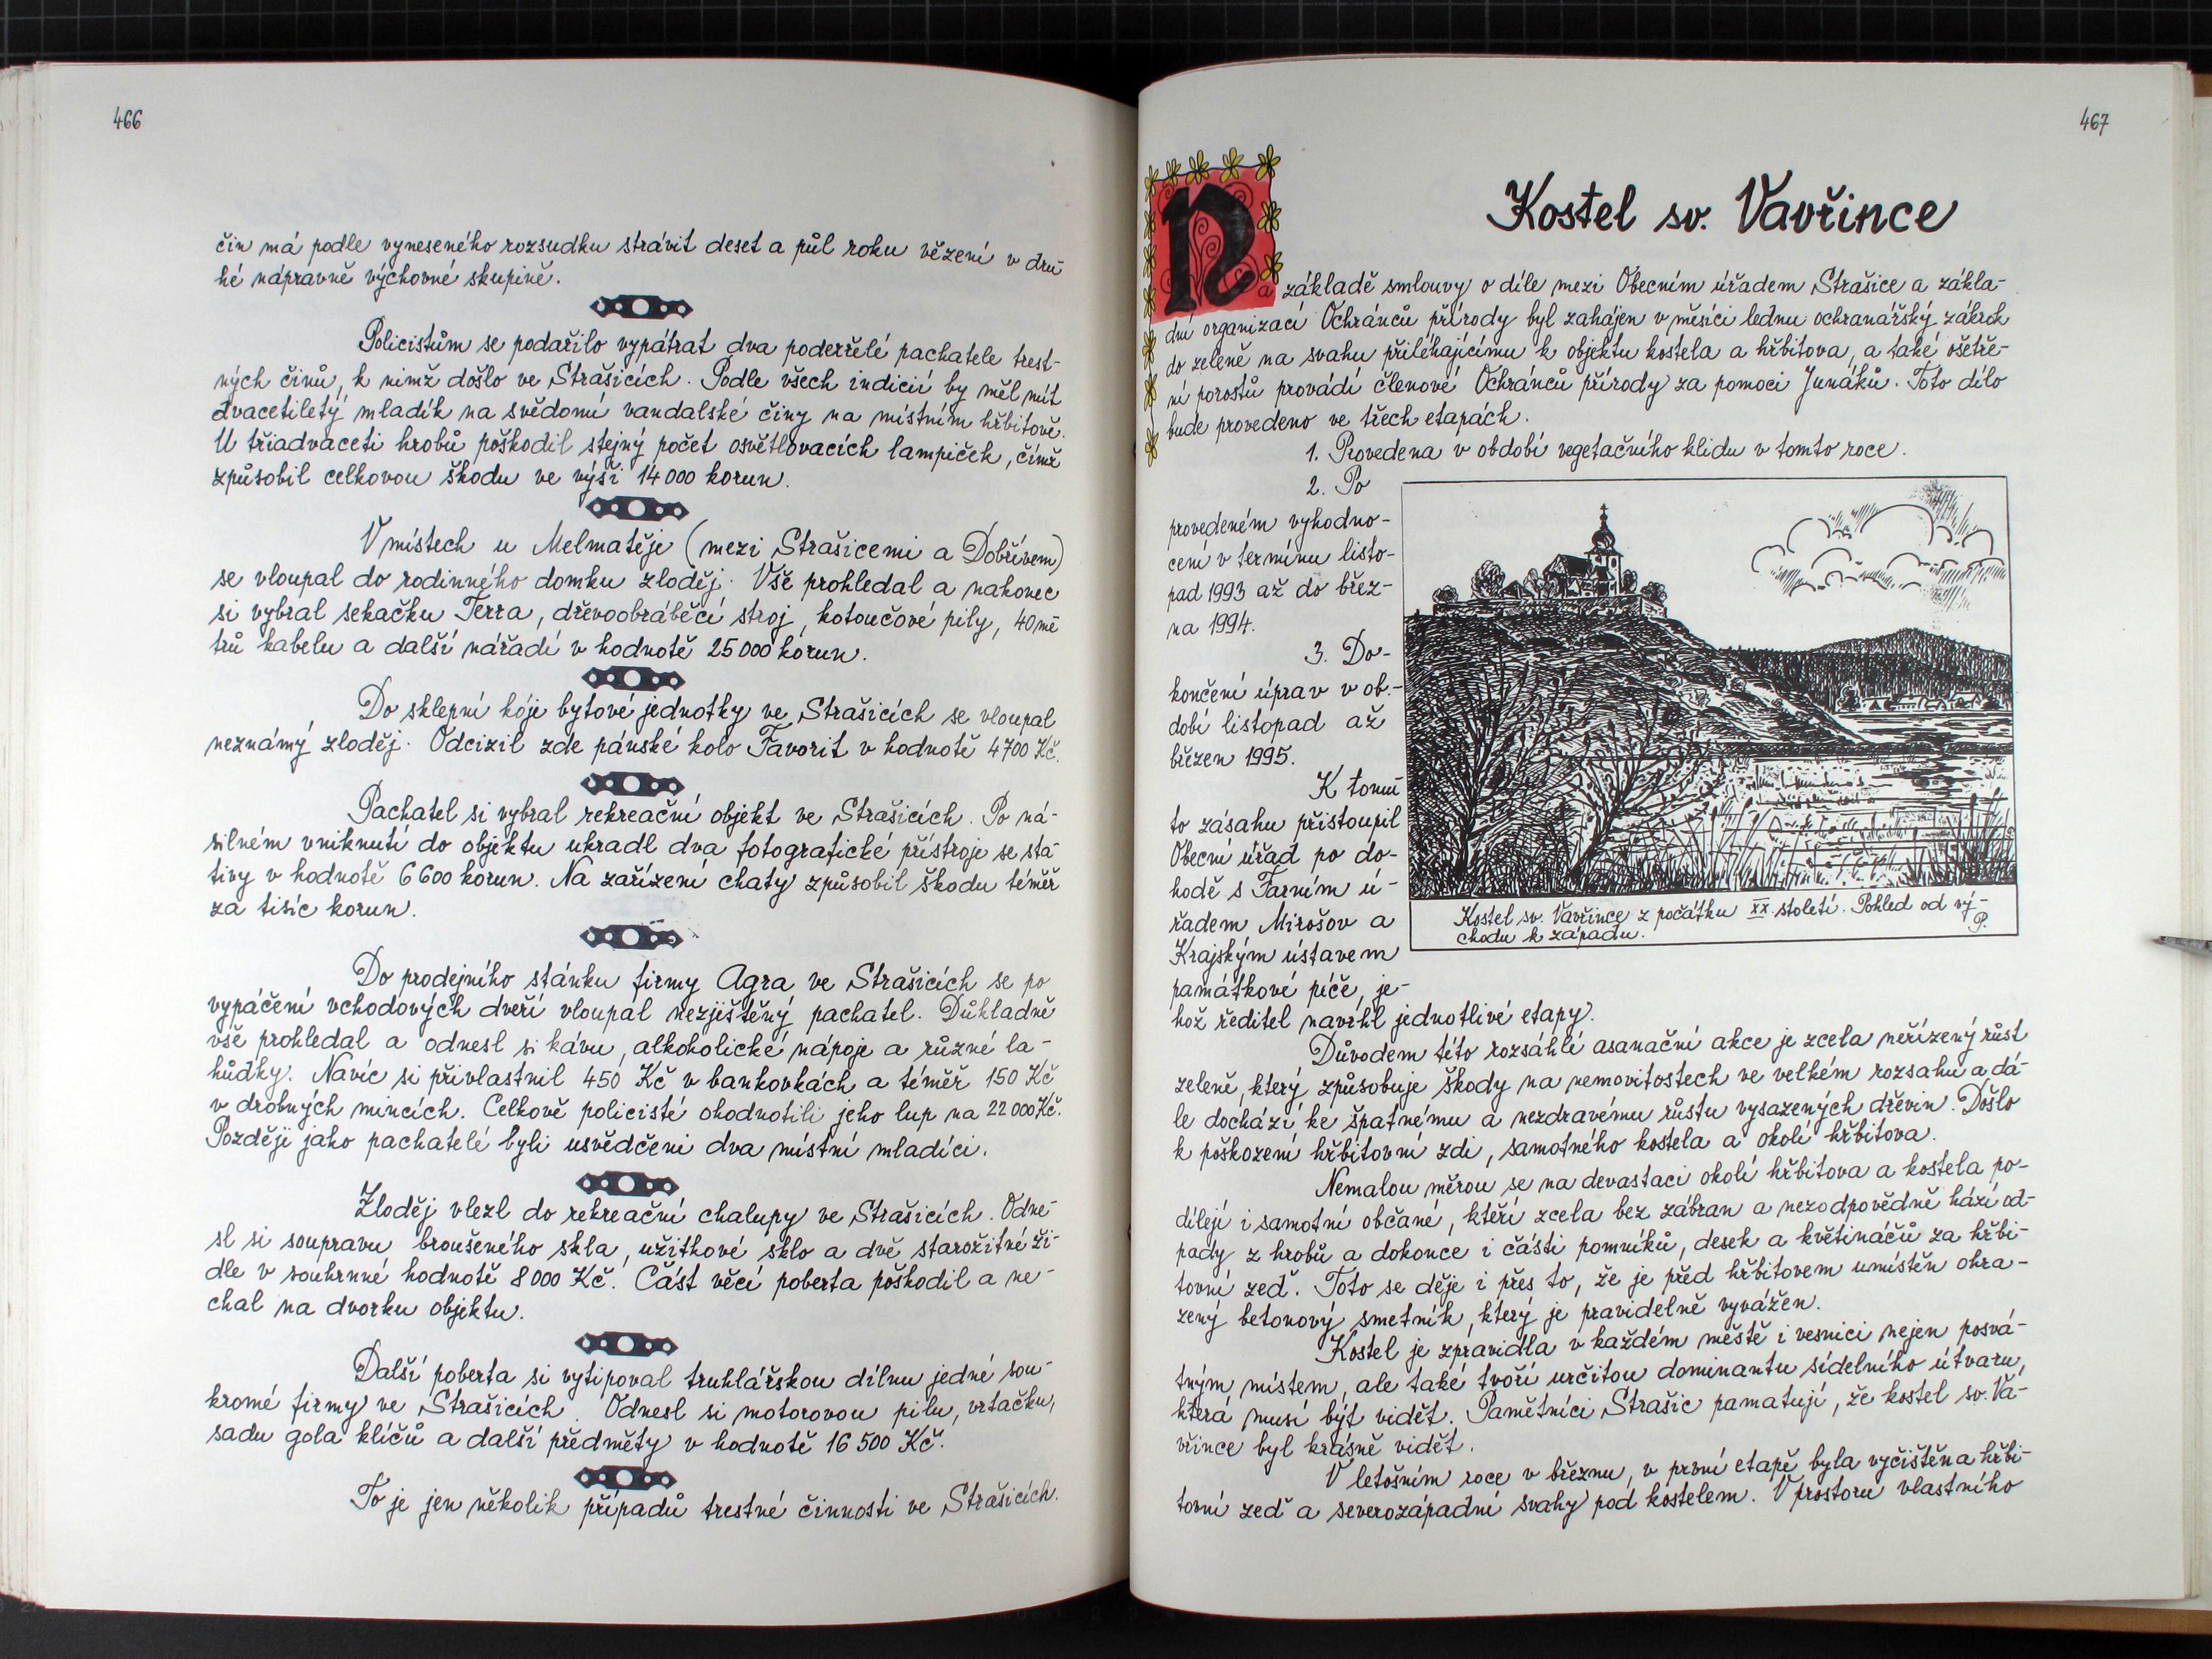 466
čin má podle vyneseného rozsudku strávit deset a půl roku vězení v dru
hé nápravně výchovné skupině.
Policistům se podařilo vypátrat dva podezřelé pachatele trest-
ných činů, k nimž došlo ve Strašicích. Podle všech indicií by měl mít
dvacetiletý mladík na svědomí vandalské činy na místním hřbitově.
U třiadvaceti hrobů poškodil stejný počet osvětlovacích lampiček, čímž
způsobil celkovou škodu ve výši 14 000 korun.
V místech u Melmatěje (mezi Strašicemi a Dobřívem)
se vloupal do rodinného domku zloděj. Vše prohledal a nakonec
si vybral sekačku Terra, dřevoobráběcí stroj, kotoučové pily, 40 mě
trů kabelu a další nářadí v hodnotě 25 000 korun.
Do sklepní kóje bytové jednotky ve Strašicích se vloupal
neznámý zloděj. Odcizil zde pánské kolo Favorit v hodnotě 4 700 Kč.
Pachatel si vybral rekreační objekt ve Strašicích. Po ná-
silném vniknutí do objektu ukradl dva fotografické přístroje se sta-
tivy v hodnotě 6 600 korun. Na zařízení chaty způsobil škodu téměř
za tisíc korun.
Do prodejního stánku firmy Agra ve Strašicích se po
vypáčení vchodových dveří vloupal nezjištěný pachatel. Důkladně
vše prohledal a odnesl si kávu, alkoholické nápoje a různé la-
hůdky. Navíc si přivlastnil 450 Kč v bankovkách a téměř 150 Kč
v drobných mincích. Celkově policisté ohodnotili jeho lup na 22 000 Kč.
Později jako pachatelé byli usvědčeni dva místní mladíci.
Zloděj vlezl do rekreační chalupy ve Strašicích. Odne-
sl si soupravu broušeného skla, užitkové sklo a dvě starožitné ži-
dle v souhrnné hodnotě 8 000 Kč. Část věcí poberta poškodil a ne-
chal na dvorku objektu.
Další poberta si vytipoval truhlářskou dílnu jedné sou-
kromé firmy ve Strašicích. Odnesl si motorovou pilu, vrtačku,
sadu gola klíčů a další předměty v hodnotě 16 500 Kč.
To je jen několik případů trestné činnosti ve Strašicích.
467
Kostel sv. Vavřince
Na základě smlouvy o díle mezi Obecním úřadem Strašice a zákla-
dní organizací Ochránců přírody byl zahájen v měsíci lednu ochranářský zákrok
do zeleně na svahu přiléhajícímu k objektu kostela a hřbitova, a také ošetře-
ní porostů provádí členové Ochránců přírody za pomoci Junáků. Toto dílo
bude provedeno ve třech etapách.
1. Provedena v období vegetačního klidu v tomto roce.
2. Po
provedeném vyhodno-
cení v termínu listo-
pad 1993 až do břez-
na 1994.
3. Do-
končení úprav v ob-
dobí listopad až
březen 1995.
K tomu
to zásahu přistoupil
Obecní úřad po do-
hodě s Farním ú-
řadem Mirošov a
Krajským ústavem
památkové péče, je-
hož ředitel navrhl jednotlivé etapy.
Kostel sv. Vavřince z počátku XX. století. Pohled od vý-
chodu k západu.
P.
Důvodem této rozsáhlé asanační akce je zcela neřízený růst
zeleně, který způsobuje škody na nemovitostech ve velkém rozsahu a dá-
le dochází ke špatnému a nezdravému růstu vysazených dřevin. Došlo
k poškození hřbitovní zdi, samotného kostela a okolí hřbitova.
Nemalou měrou se na devastaci okolí hřbitova a kostela po-
dílejí i samotní občané, kteří zcela bez zábran a nezodpovědně hází od-
pady z hrobů a dokonce i části pomníků, desek a květináčů za hřbi-
tovní zeď. Toto se děje i přes to, že je před hřbitovem umístěn ohra-
zený betonový smetník, který je pravidelně vyvážen.
Kostel je zpravidla v každém městě i vesnici nejen posvá-
tným místem, ale také tvoří určitou dominantu sídelního útvaru,
která musí být vidět. Pamětníci Strašic pamatují, že kostel sv. Va-
vřince byl krásně vidět.
V letošním roce v březnu, v první etapě byla vyčištěna hřbi-
tovní zeď a severozápadní svahy pod kostelem. V prostoru vlastního